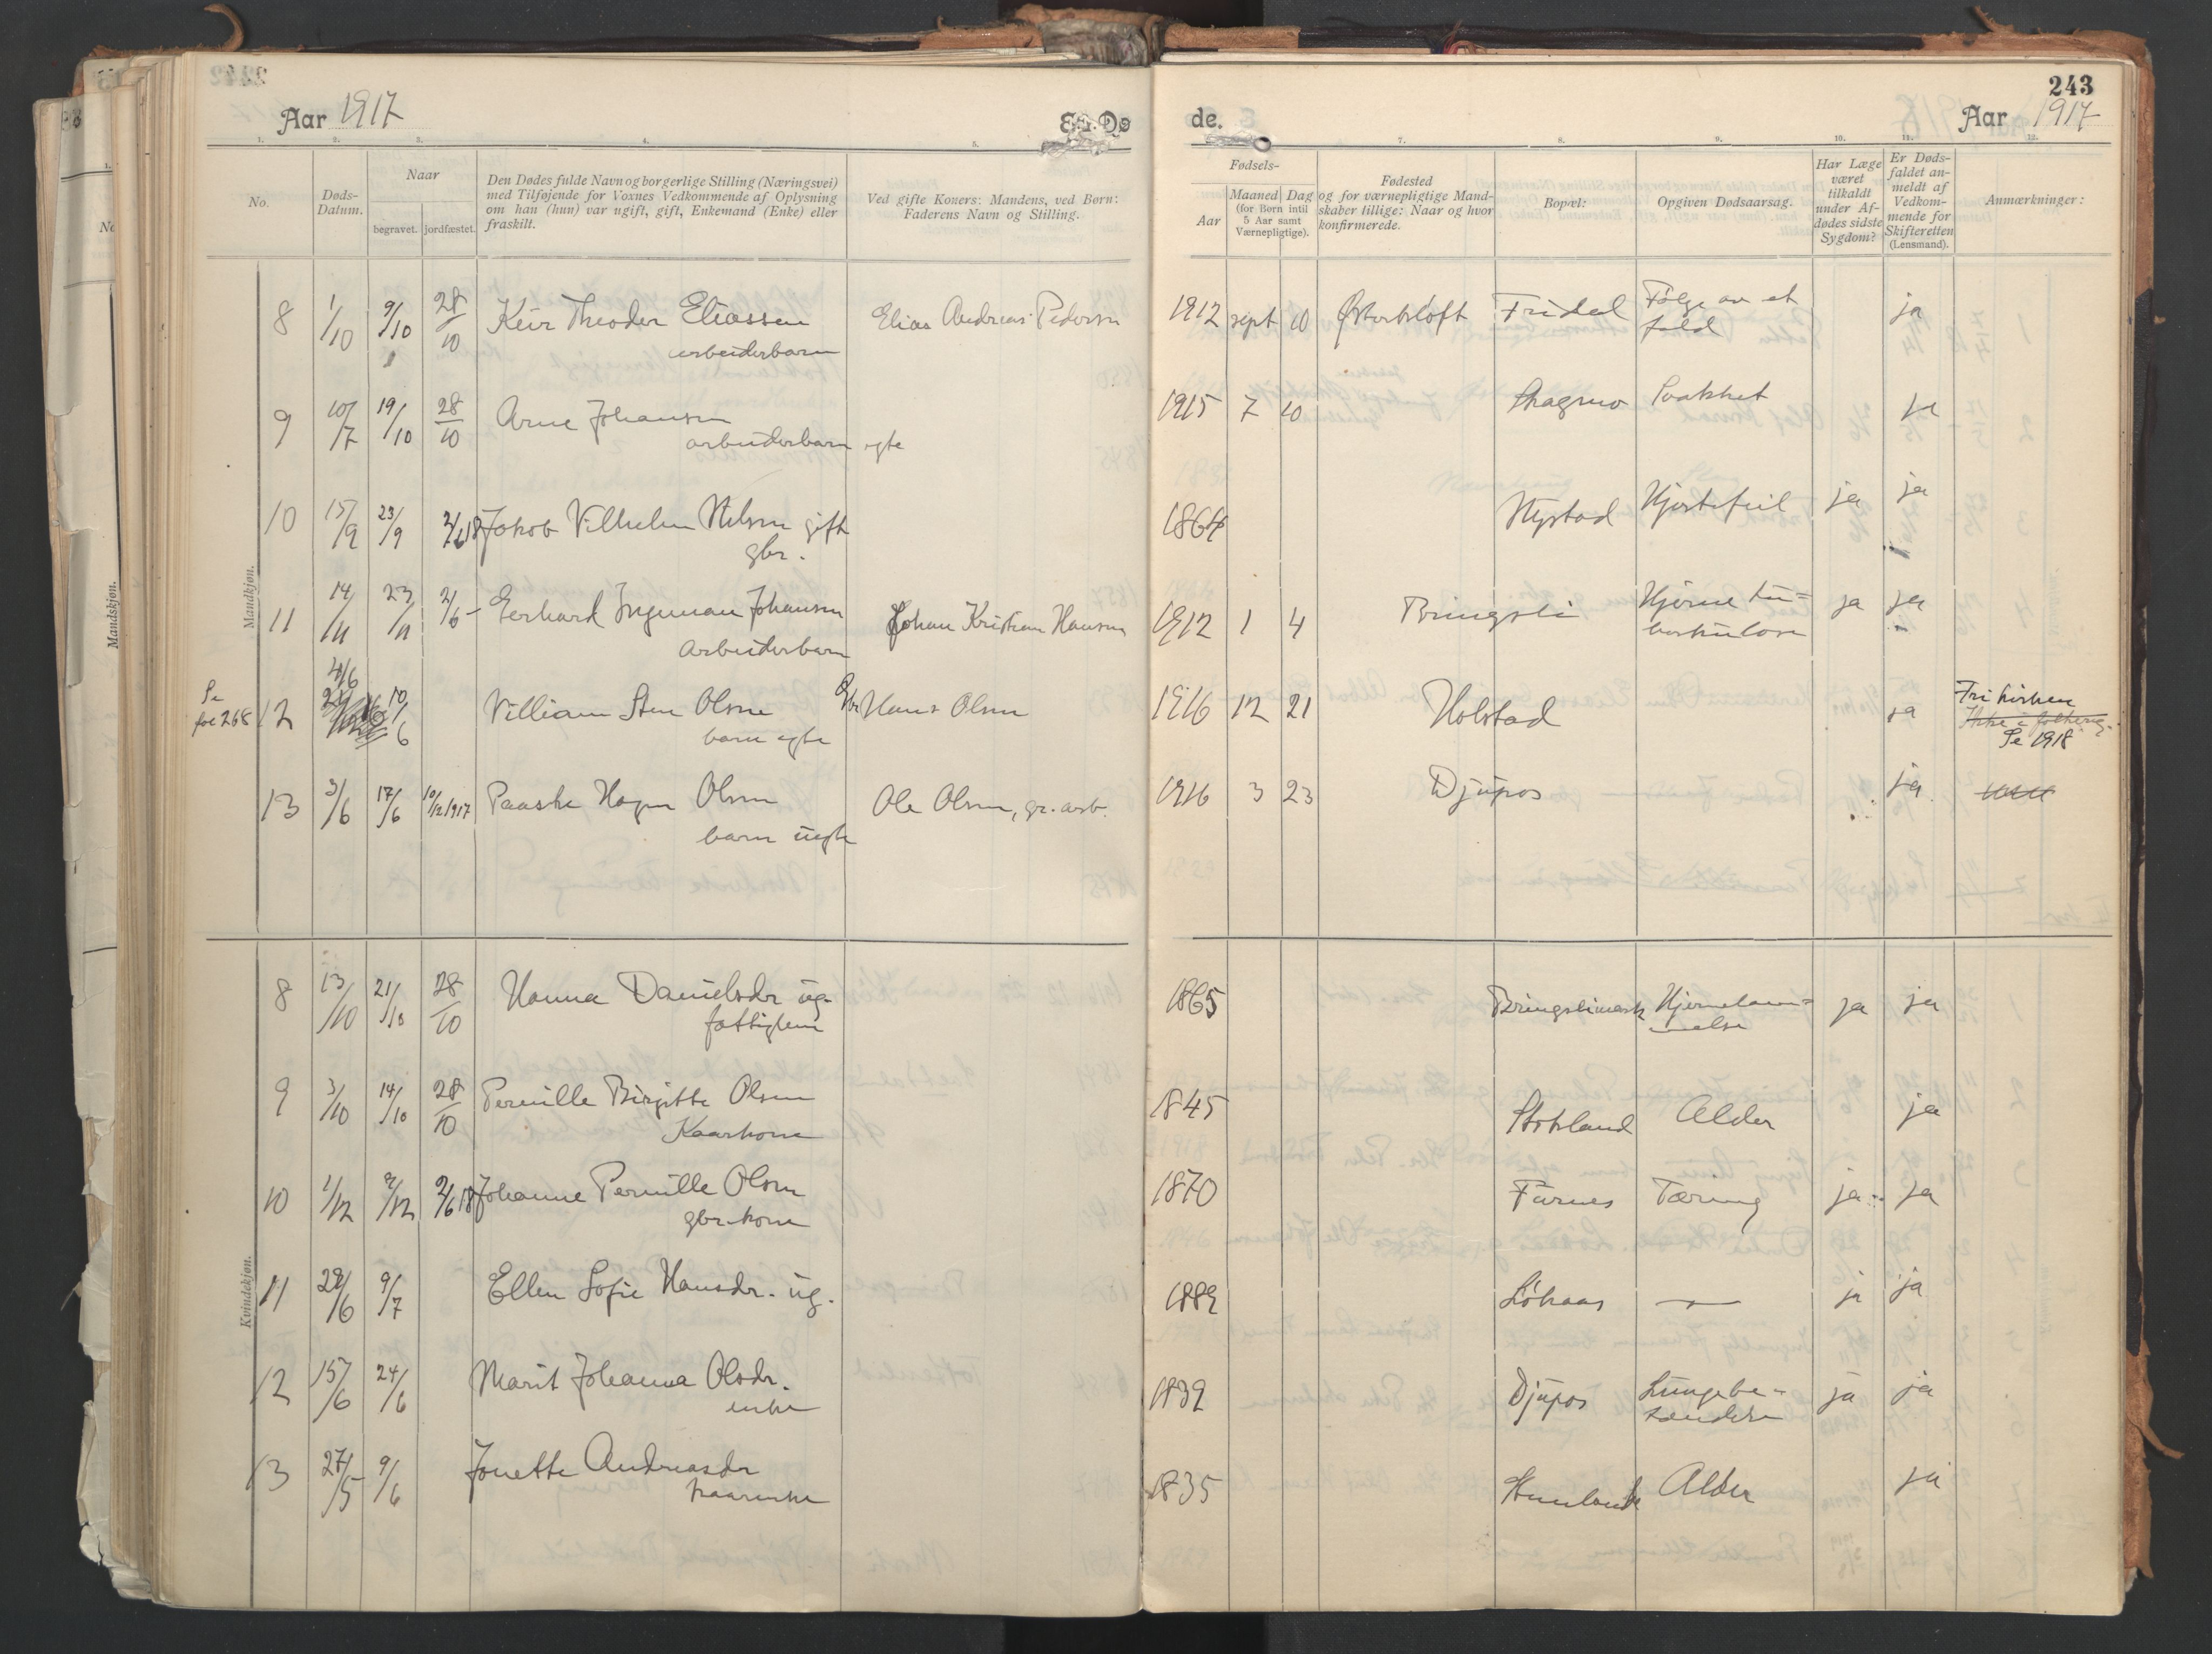 243
Aar 1917
E. Dø
de.
Aar 1917
1. 2. 3. 4. 5. 7. 8. 9. 10. 11. 12.
No.
Døds-
Datum.
Naar
begravet. jordfæstet.
Den Dødes fulde Navn og borgerlige Stilling (Næringsvei)
med Tilføjende for Voxnes Vedkommende af Oplysning
om han (hun) var ugift, gift, Enkemand (Enke) eller
fraskilt.
Ved gifte Koners: Mandens, ved Børn:
Faderens Navn og Stilling.
Fødsels-
Aar
Maaned Dag
(for Børn intil
5 Aar samt
Værnepligtige).
Fødested
og for værnepligtige Mand-
skaber tillige: Naar og hvor
konfirmerede.
Bopæl:
Opgiven Dødsaarsag.
Har Læge
været
tilkaldt
under Af-
dødes sidste
Sygdom?
Er Døds-
faldet an-
meldt af
Vedkom-
mende for
Skifteretten
(Lensmand).
Anmærkninger:
Mandkjøn.
8 1/10 9/10 28/10 Keir Theodor Eliassen Elias Andreas Pedersen 1912 sept 10 Fridal Følge av et ja
arbeiderbarn fald
9 10/7 19/10 28/10 Arne Johansen 1915 7 10 Skagmo ja
arbeiderbarn egte
10 15/9 23/9 2/6 18 Jakob Vilhelm Nilsen gift 1864 Nystad Hjertefeil ja ja
gbr.
11 14/11 23/11 2/6 - Gerhard Ingeman Johansen Johan Kristian Hansen 1912 1 4 Bringsli Hjerne tu= ja ja
arbeiderbarn berkulose
Se
fol 268 12 4/6 10/6 Villiam Sten Olsen Gbr Hans Olsen 1916 12 21 Holstad ja Fri kirken
barn egte Ikke i folkereg.
Se 1918
13 3/6 17/6 10/12 1917 Paaske Hagen Olsen Ole Olsen, gr. arb. 1916 3 23 Djupos ja
barn uegte
Kvindekjøn.
8 13/10 21/10 28/10 Hanna Danielsdr ug. 1865 Bringslimark Hjernelam= ja ja
fattiglem melse
9 3/10 14/10 28/10 Pernille Birgitte Olsen 1845 Stokland Alder ja
Kaarkone
10 1/12 9/12 2/6 18 Johanne Pernille Olsen 1870 Furnes Tæring ja ja
gbr. kone
11 29/6 9/7 Ellen Sofie Hansdr. ug. 1889 Løkaas — " — ja ja
12 15/6 24/6 Marit Johanna Olsdr. 1832 Djupos Lungebe- ja ja
enke tændelse
13 27/5 9/6 Jonette Andreasdr 1835 Alder ja
kaarenke
Mandskjøn.